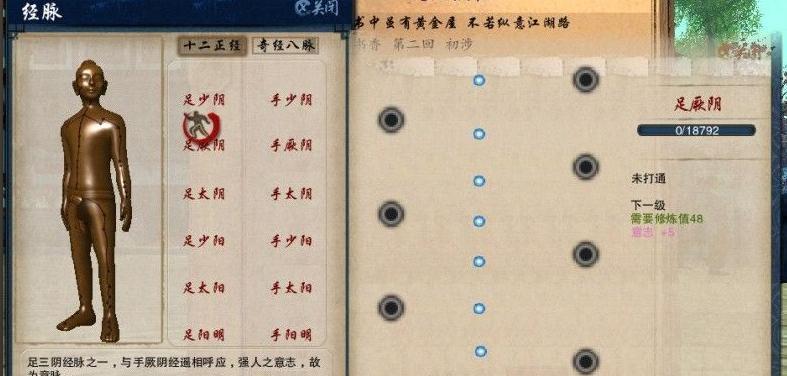 经脉
关闭
十二正经
奇经八脉
足少阴
手少阴
足厥阴
手厥阴
足太阴
手太阴
足少阳
手少阳
足太阳
手太阳
足阳明
手阳明
足三阴经脉之一，与手厥阴经遥相呼应，强人之意志，故
书中虽有黄金屋 不若纵意江湖路
书香 第二回 初涉
足厥阴
0/18792
未打通
下一级
需要修炼值48
意志 +5